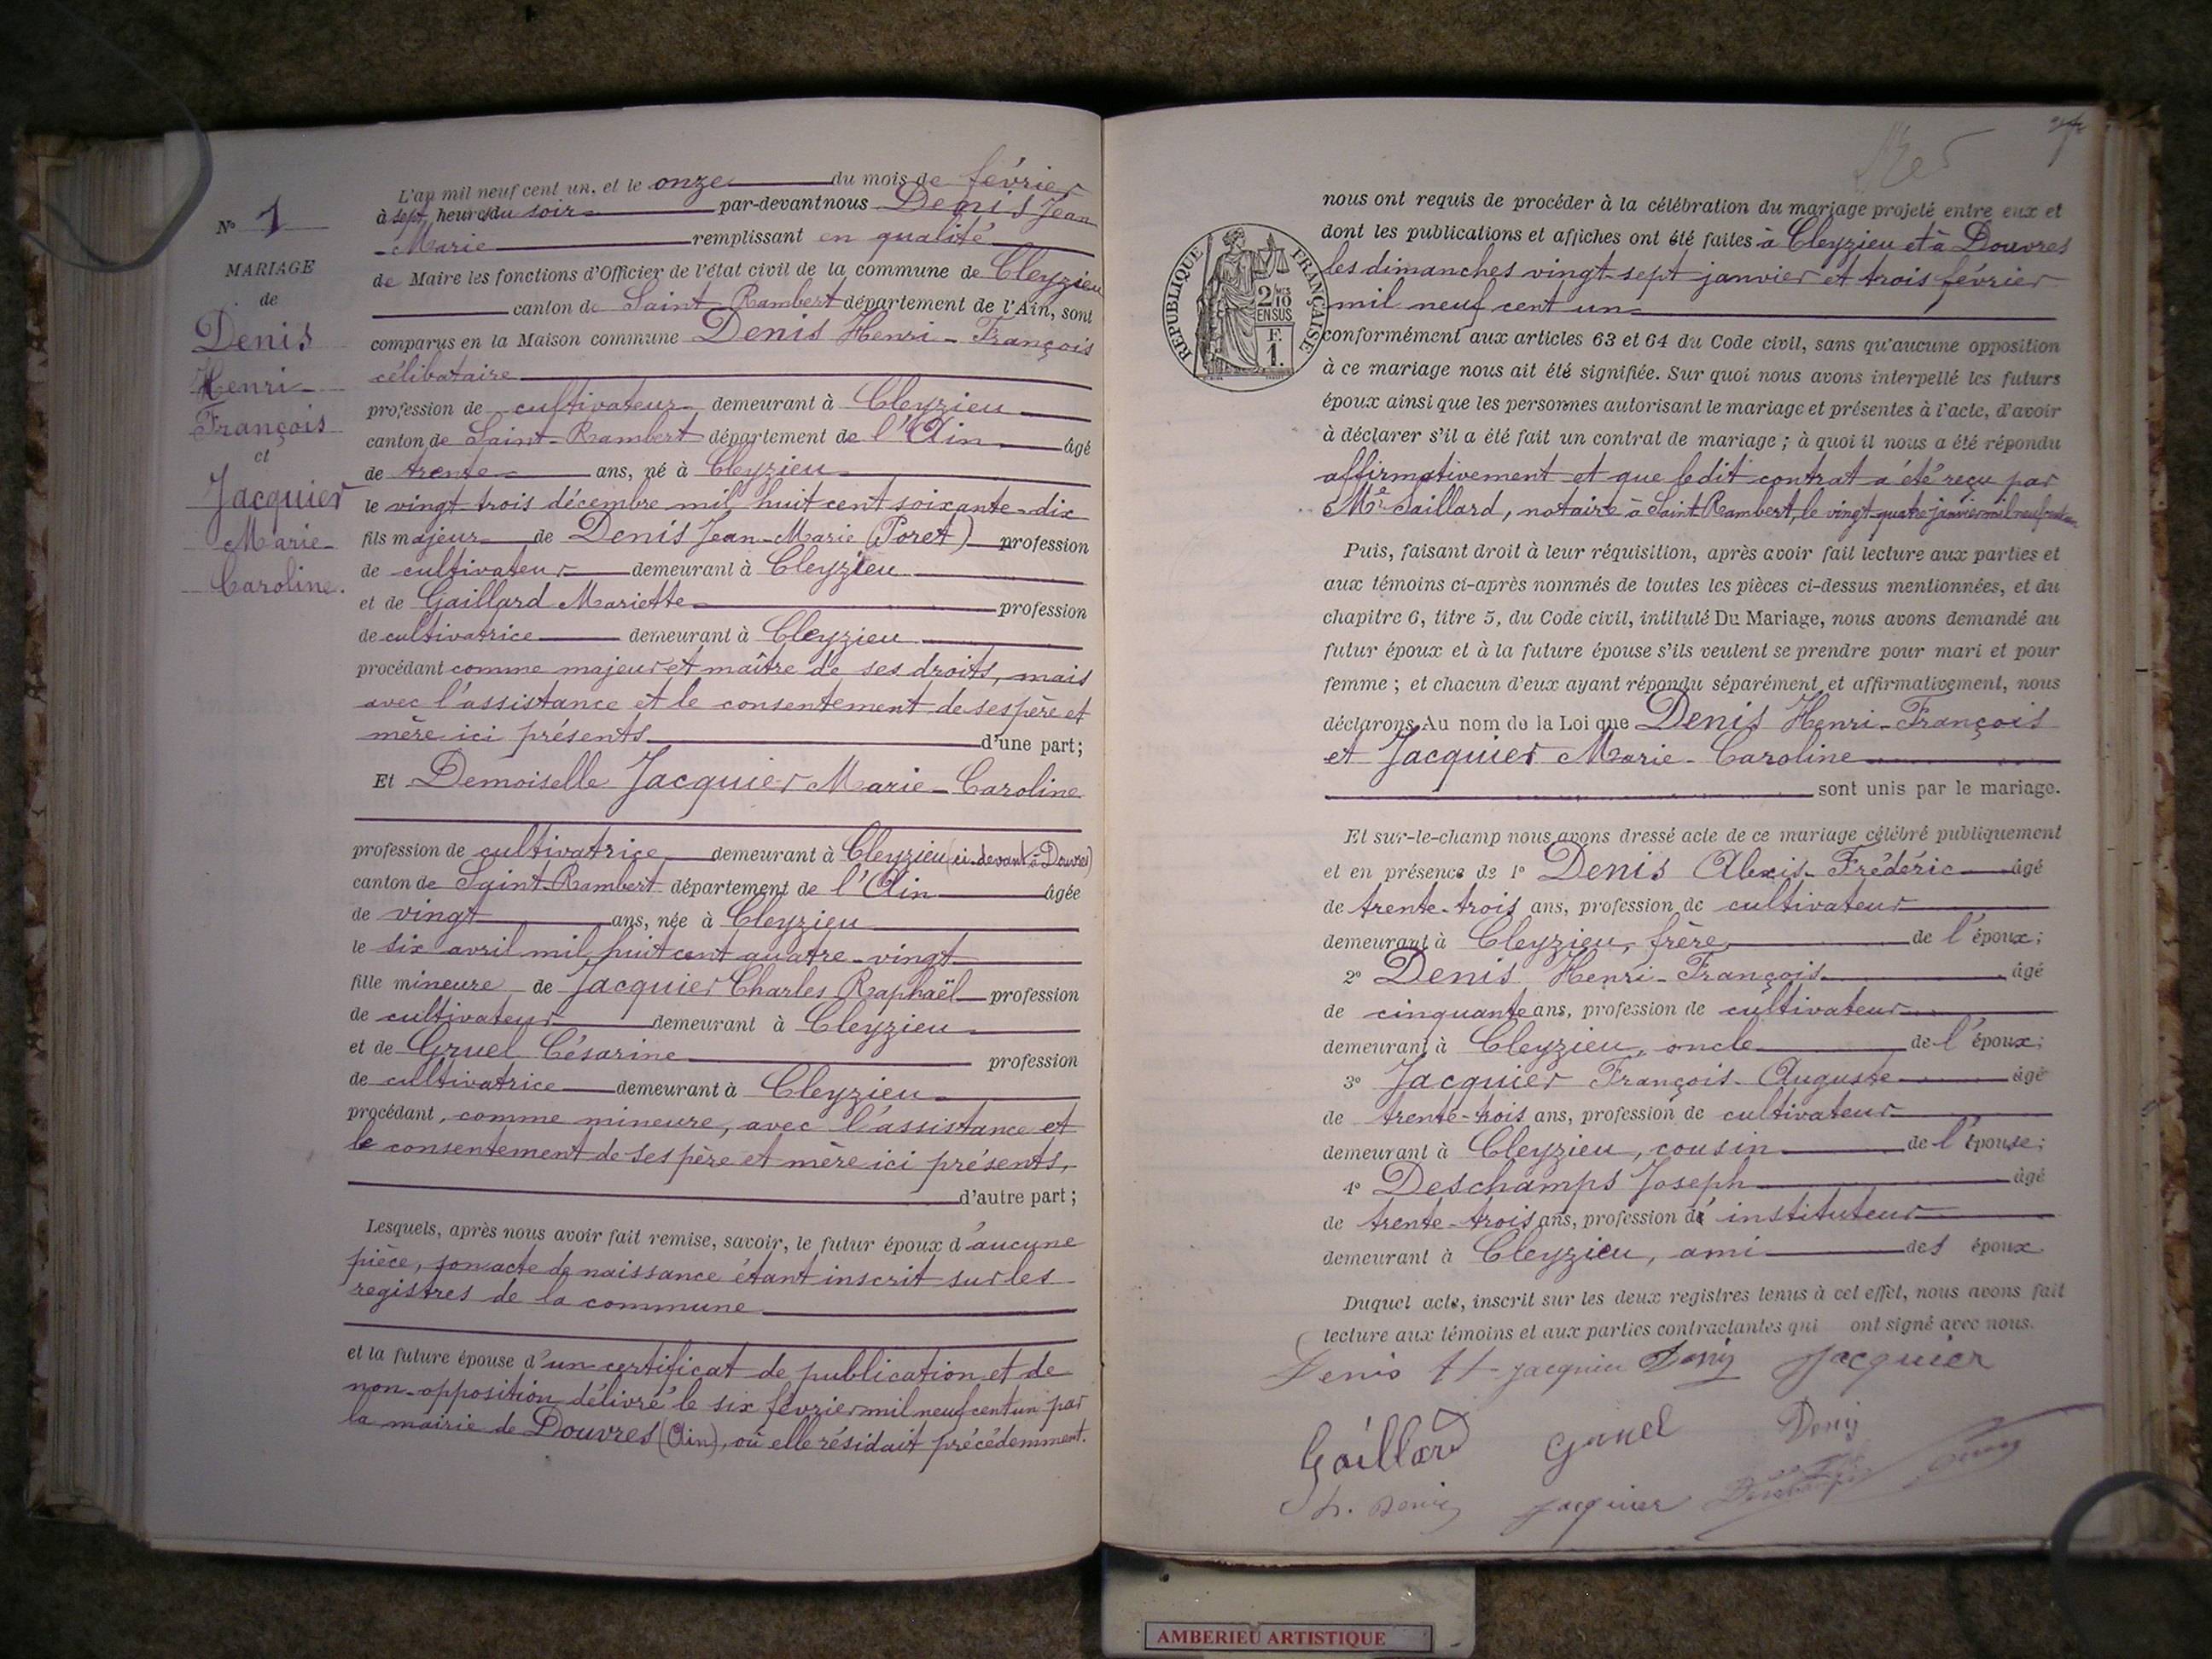 N° 1
MARIAGE
de
Denis
Henri-
François
et
Jacquier
Marie-
Caroline.
L'an mil neuf cent un, et le onze du mois de février
à sept heures du soir par-devant nous Denis Jean
-Marie remplissant en qualité
de Maire les fonctions d'Officier de l'état civil de la commune de Cleyzieu
canton de Saint-Rambert département de l'Ain, sont
comparus en la Maison commune Denis Henri-François
célibataire
profession de cultivateur demeurant à Cleyzieu
canton de Saint-Rambert département de l'Ain âgé
de trente ans, né à Cleyzieu
le vingt trois décembre mil huit cent soixante-dix
fils majeur de Denis Jean-Marie (Poret) profession
de cultivateur demeurant à Cleyzieu
et de Gaillard Mariette profession
de cultivatrice demeurant à Cleyzieu
procédant comme majeur et maître de ses droits, mais
avec l'assistance et le consentement de ses père et
mère ici présents d'une part;
Et Demoiselle Jacquier Marie-Caroline
profession de cultivatrice demeurant à Cleyzieu (ci-devant à Douvres)
canton de Saint-Rambert département de l'Ain âgée
de vingt ans, née à Cleyzieu
le six avril mil huit cent quatre-vingt
fille mineure de Jacquier Charles Raphaël profession
de cultivateur demeurant à Cleyzieu
et de Gruel Césarine profession
de cultivatrice demeurant à Cleyzieu
procédant, comme mineure, avec l'assistance et
le consentement de ses père et mère ici présents,
d'autre part;
Lesquels, après nous avoir fait remise, savoir, le futur époux d'aucune
pièce, son acte de naissance étant inscrit sur les
registres de la commune
et la future épouse d'un certificat de publication et de
non-opposition délivré le six février mil neuf cent un par
la mairie de Douvres (Ain), où elle résidait précédemment.
RÉPUBLIQUE FRANÇAISE
2/10 EN SUS
F.
1.
nous ont requis de procéder à la célébration du mariage projeté entre eux et
dont les publications et affiches ont été faites à Cleyzieu et à Douvres
les dimanches vingt-sept janvier et trois février
mil neuf cent un
conformément aux articles 63 et 64 du Code civil, sans qu'aucune opposition
à ce mariage nous ait été signifiée. Sur quoi nous avons interpellé les futurs
époux ainsi que les personnes autorisant le mariage et présentes à l'acte, d'avoir
à déclarer s'il a été fait un contrat de mariage; à quoi il nous a été répondu
affirmativement et que ledit contrat a été reçu par
Me Saillard, notaire à Saint-Rambert, le vingt-quatre janvier mil neuf cent un.
Puis, faisant droit à leur réquisition, après avoir fait lecture aux parties et
aux témoins ci-après nommés de toutes les pièces ci-dessus mentionnées, et du
chapitre 6, titre 5, du Code civil, intitulé Du Mariage, nous avons demandé au
futur époux et à la future épouse s'ils veulent se prendre pour mari et pour
femme; et chacun d'eux ayant répondu séparément et affirmativement, nous
déclarons Au nom de la Loi que Denis Henri-François
et Jacquier Marie-Caroline
sont unis par le mariage.
Et sur-le-champ nous avons dressé acte de ce mariage célébré publiquement
et en présence de 1° Denis Alexis-Frédéric âgé
de trente-trois ans, profession de cultivateur
demeurant à Cleyzieu, frère de l'époux;
2° Denis Henri-François âgé
de cinquante ans, profession de cultivateur
demeurant à Cleyzieu, oncle de l'époux;
3° Jacquier François-Auguste âgé
de trente-trois ans, profession de cultivateur
demeurant à Cleyzieu, cousin de l'épouse;
4° Deschamps Joseph âgé
de trente-trois ans, profession de instituteur
demeurant à Cleyzieu, ami des époux
Duquel acte, inscrit sur les deux registres tenus à cet effet, nous avons fait
lecture aux témoins et aux parties contractantes qui ont signé avec nous.
Denis H jacquier Denis Jacquier
Gaillard Gruel Denis
h. Denis jacquier Deschamps Denis
AMBERIEU ARTISTIQUE